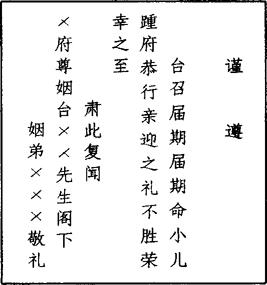 谨遵
台召届期届期命小儿
踵府恭行亲迎之礼不胜荣
幸之至
肃此复闻
×府尊姻台××先生阁下
姻弟×××敬礼